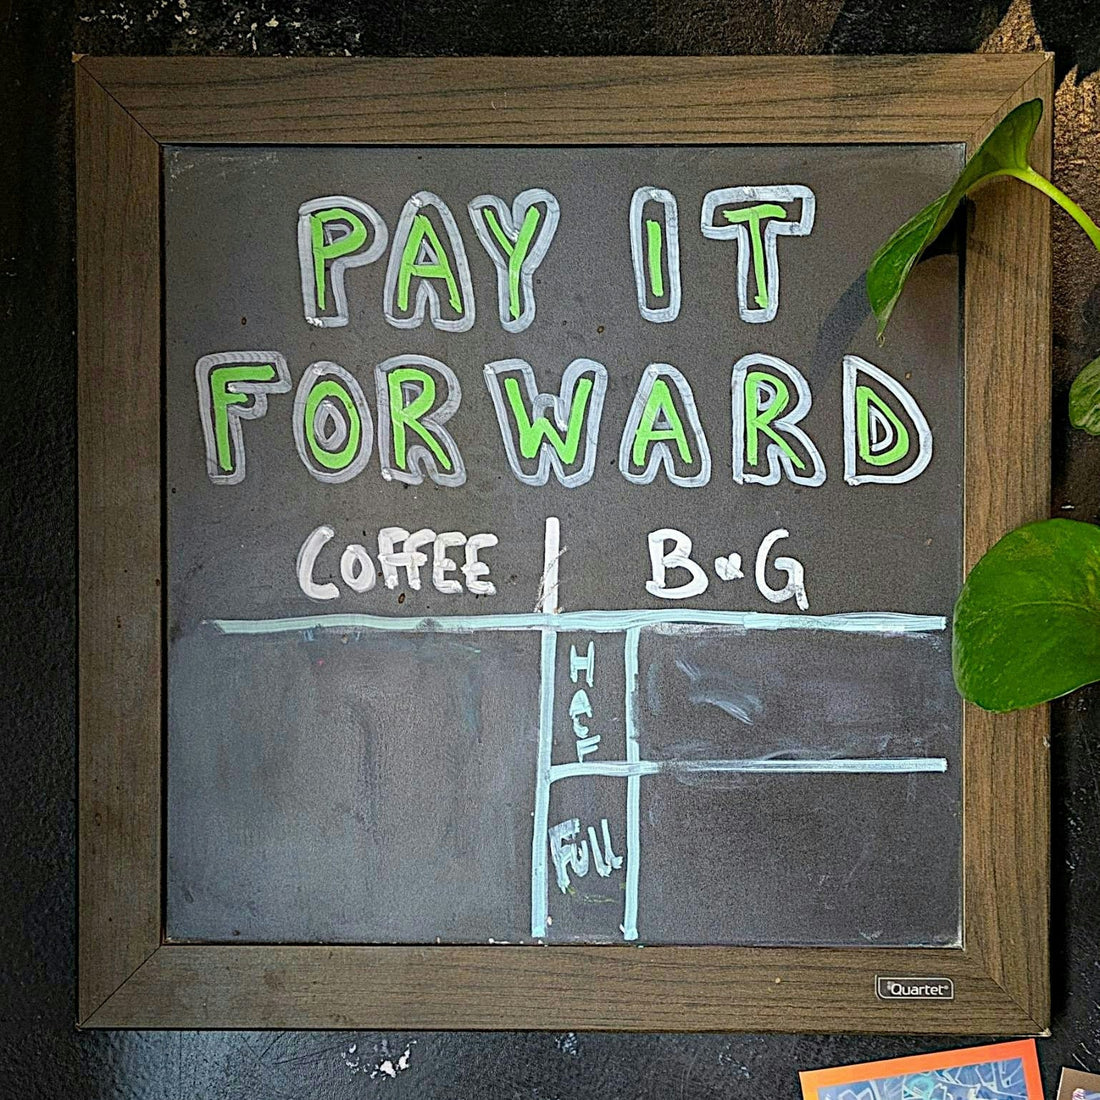 PAY IT
FORWARD
COFFEE | B♥G
Half
Full
Quartet